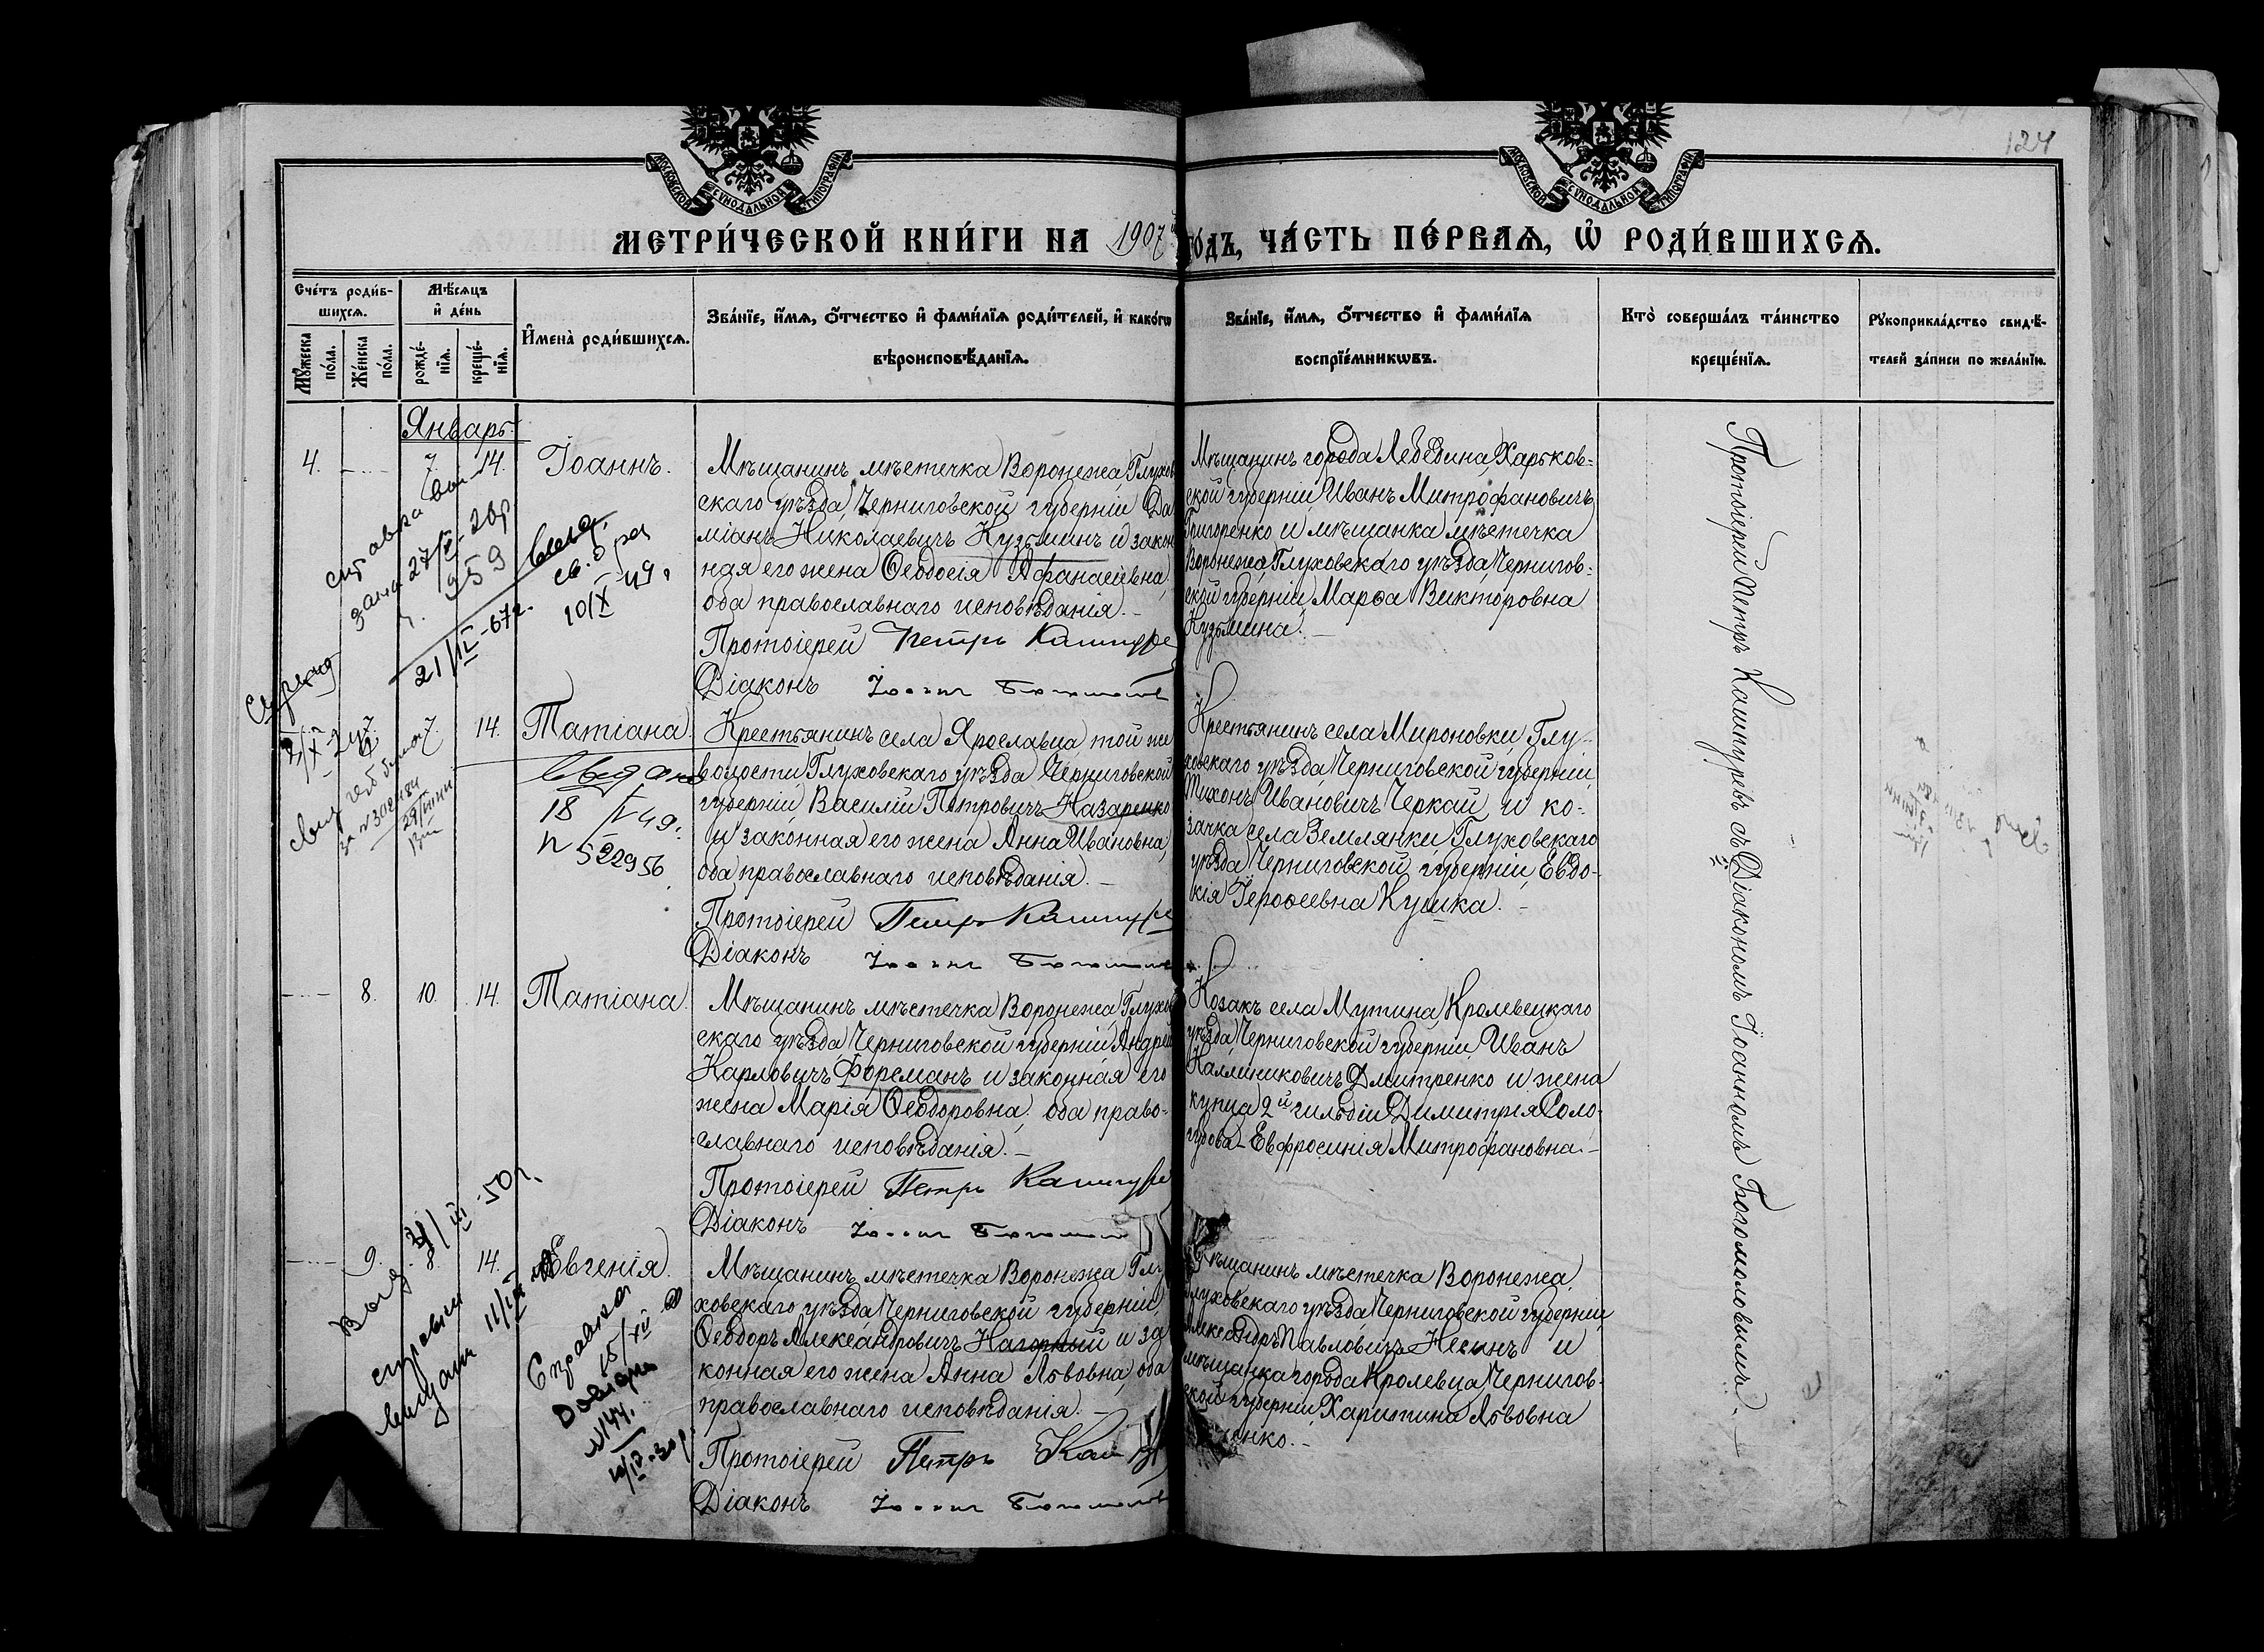 124
МОСКОВСКОЙ СѴНОДАЛЬНОЙ ТИПОГРАФІИ
МОСКОВСКОЙ СѴНОДАЛЬНОЙ ТИПОГРАФІИ
МЕТРИ́ЧЕСКОЙ КНИ́ГИ НА 1907 ГО́ДЪ, ЧА́СТЬ ПЕ́РВАѦ, Ѡ҆ РОДИ́ВШИХСѦ.
Сче́тъ роди́в-
шихсѧ.
Мꙋ́жеска по́ла.
Же́нска по́ла.
Мѣ́сѧцъ
и҆ де́нь
рожде́-
нїѧ.
креще́-
нїѧ.
И҆мена̀ роди́вшихсѧ.
Зва́нїе, и҆́мѧ, ѻ҆́тчество и҆ фами́лїѧ роди́телей, и҆ како́гѡ
вѣроисповѣ́данїѧ.
Зва́нїе, и҆́мѧ, ѻ҆́тчество и҆ фами́лїѧ
воспрїе́мникѡвъ.
Кто̀ соверша́лъ та́инство
креще́нїѧ.
Рꙋкоприкла́дство свидѣ́-
телей за́писи по жела́нїю.
Январь.
4.
7.
14.
Іоаннъ.
Мѣщанинъ мѣстечка Воронежа, Глухов
скаго уѣзда, Черниговской губерніи Да
міанъ Николаевичъ Кузьминъ и закон
ная его жена Ѳеодосія Афанасіевна,
оба православнаго исповѣданія.–
Протоіерей Петръ Кашпуре
Діаконъ
Мѣщанинъ города Лебедина, Харьков=
ской губерніи, Иванъ Митрофановичъ
Григоренко и мѣщанка мѣстечка
Воронежа, Глуховскаго уѣзда, Чернигов=
ской губерніи, Марѳа Викторовна
Кузьмина.–
справка
27/V-26р
959
21/IV-67г.
10/X 49.
7.
7.
14.
Татіана.
Крестьянинъ села Ярославца той же
волости, Глуховскаго уѣзда Черниговской
губерніи Василій Петровичъ Назаренко
и законная его жена Анна Ивановна,
оба православнаго исповѣданія.–
Протоіерей Петръ Кашпуре
Діаконъ
Крестьянинъ села Мироновки, Глу-
ховскаго уѣзда, Черниговской губерніи,
Тихонъ Ивановичъ Черкай и ко-
зачка села Землянки, Глуховскаго
уѣзда, Черниговской губерніи, Евдо-
кія Іероѳеевна Кушка.–
18/V 49г.
N 522956
8.
10.
14.
Татіана.
Мѣщанинъ мѣстечка Воронежа, Глухов
скаго уѣзда, Черниговской губерніи, Андрей
Карловичъ Форсманъ и законная его
жена Марія Ѳеодоровна, оба право-
славнаго исповѣданія.–
Протоіерей Петръ Кашпуре
Діаконъ
Козакъ села Мутина, Кролевецкаго
уѣзда, Черниговской губерніи Иванъ
Каллиниковичъ Дмитренко и жена
купца 2й гильдіи Димитрія Соло-
губова – Евфросинія Митрофановна.–
9.
8.
14.
Евгенія.
Мѣщанинъ мѣстечка Воронежа Глу
ховскаго уѣзда, Черниговской губерніи,
Ѳеодоръ Александровичъ Нагорный и за
конная его жена Анна Львовна, оба
православнаго исповѣданія.–
Протоіерей Петръ Каш
Діаконъ
Мѣщанинъ мѣстечка Воронежа,
Глуховскаго уѣзда, Черниговской губерніи,
Александръ Павловичъ Несинъ и
мѣщанка города Кролевца, Чернигов-
ской губерніи, Харитина Львовна
енко.–
Справка
15/XII
N144.
Протоіерей Петръ Кашпуревъ съ Діакономъ Іоанномъ Богомоловымъ.–